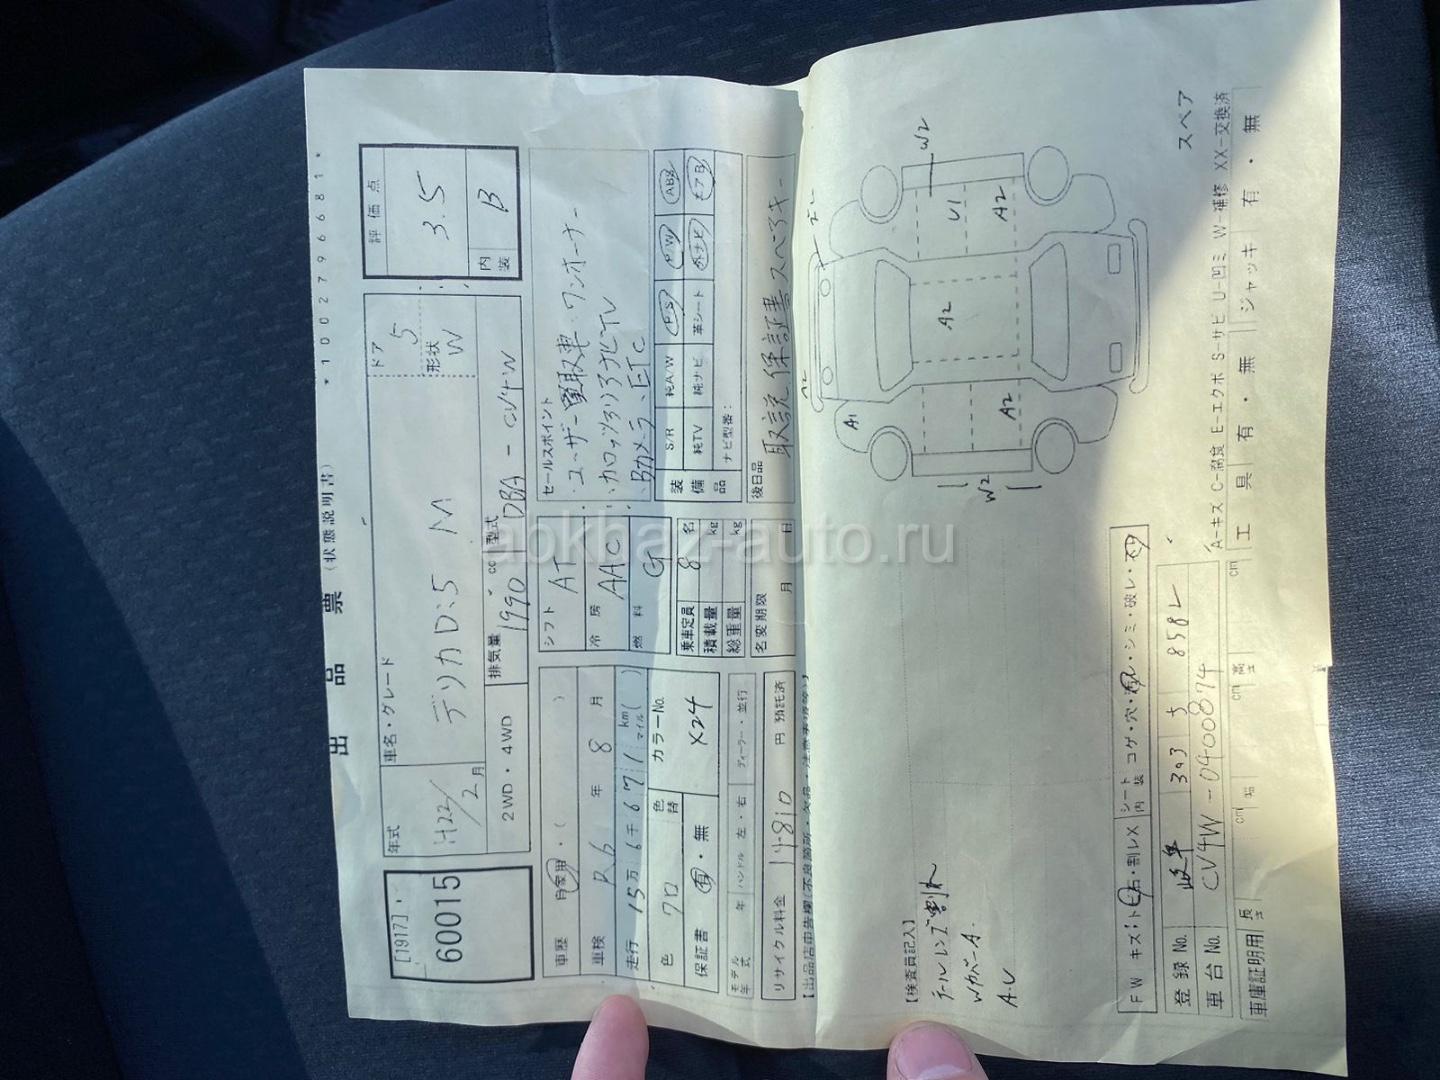 *10027966​81*
出品票 (状態説明書)
[1917]
60015
年式
H22/2月
車名・グレード
デリカD:5 M
ドア
5
形状
W
評価点
3.5
内装
B
2WD・4WD
排気量 1990 cc
型式 DBA - CV4W
車歴 自家用・( )
車検 R6年8月
走行 15万6千671 km(マイル)
色 クロ
色替
カラーNo. X24
保証書 有・無
モデル年式 年
ハンドル 左・右
ディーラー・並行
リサイクル料金 14810 円 預託済
シフト AT
冷房 AAC
燃料 G
乗車定員 8 名
積載量 kg
総重量 kg
名変期限 月 日
セールスポイント
・ユーザー買取車 ワンオーナー
・カロッツェリアナビTV
・Bカメラ、ETC
装備品
S/R 純A/W P・S P・W ABS
純TV 純ナビ 革シート 外ナビ エアB
ナビ型番:
後日品
取説 保証書 スペアキー
【出品店申告欄(不良箇所・欠品・注意事項等)】
【検査員記入】
テールレンズ割れ
Wカバー A.
A.U
A2
A1
A2
A2
U1
A2
W2
W2
スペア
FW キズ・トビ石・割レX
シート内装 コゲ・穴・スレ・シミ・破レ・
登録No. 岐阜 303 す 8582
車台No. CV4W-0400874
A-キズ C-腐食 E-エクボ S-サビ U-凹ミ W-補修 XX-交換済
車庫証明用 長さ cm 幅 cm 高さ cm
工具 有・無 ジャッキ 有・無
abkhaz-auto.ru